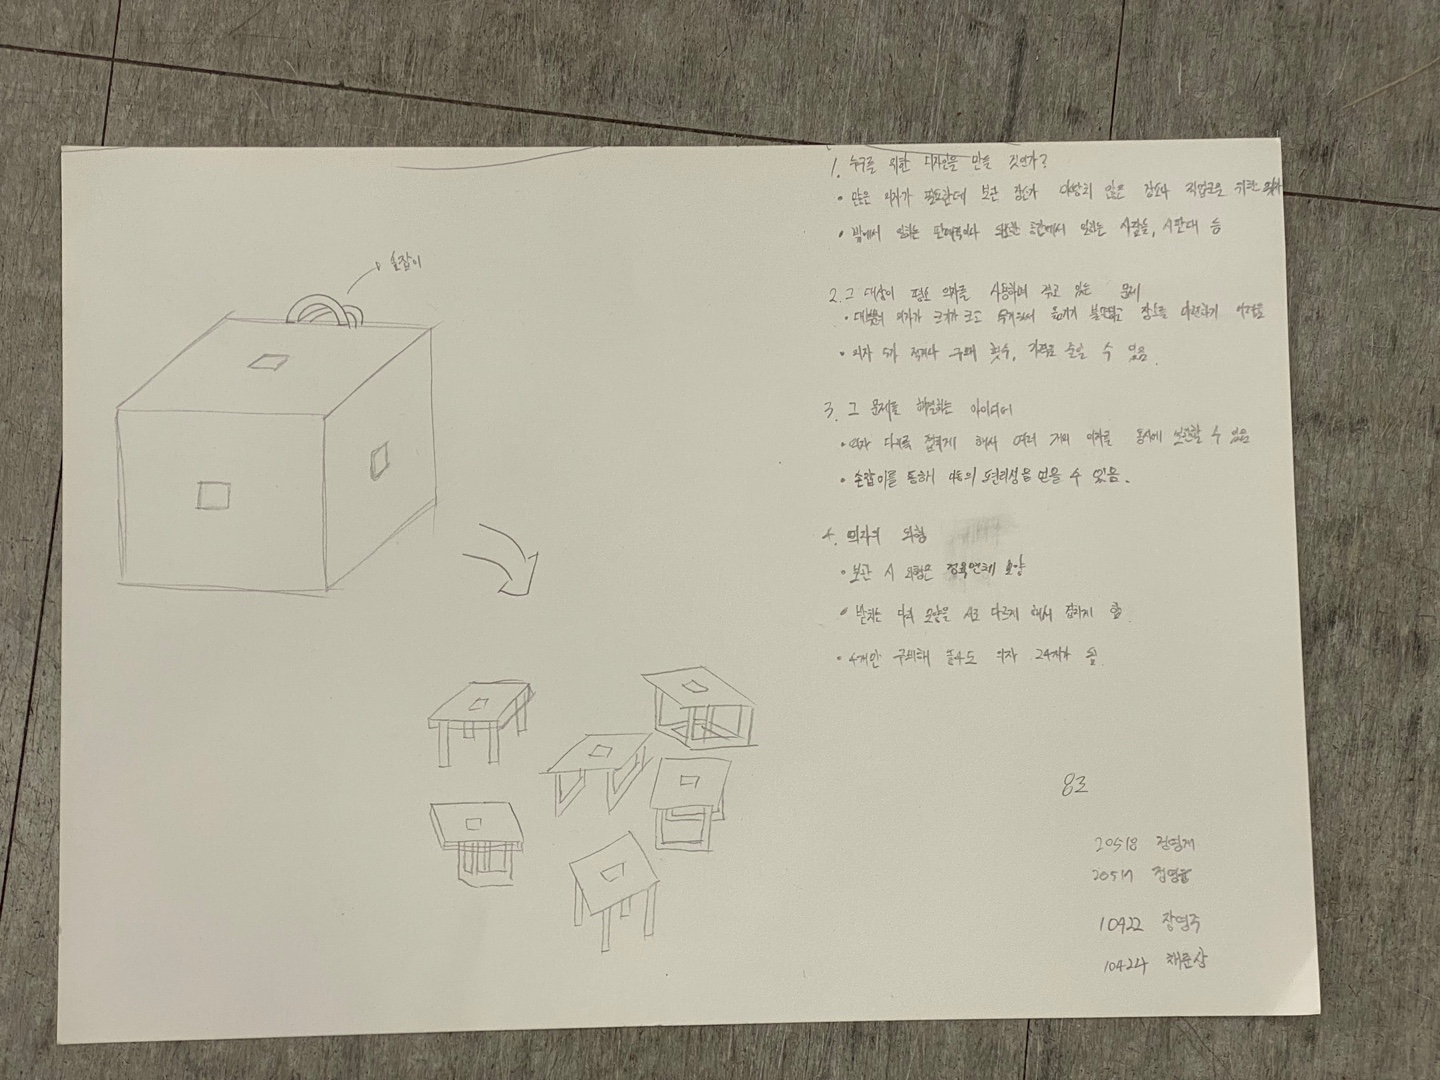 손잡이
1. 누구를 위한 디자인을 만들 것인가?
• 많은 의자가 필요한데 보관 장소가 마땅치 않은 장소나 직업군을 위한 의자
• 밖에서 일하는 판매직이나 통한에서 일하는 사람들, 시판대 등
2. 그 대상이 평소 의자를 사용하며 겪고 있는 문제
• 대부분의 의자가 크기가 크고 무거워서 옮기기 불편하고 장소를 마련하기 어려움
• 의자 수가 적거나 구매 횟수, 가격을 줄일 수 있음.
3. 그 문제를 해결하는 아이디어
• 의자 다리를 접히게 해서 여러 개의 의자를 동시에 보관할 수 있음
• 손잡이를 통해 이동의 편리성을 얻을 수 있음.
4. 의자의 외형
• 보관 시 외형은 정육면체 모양
• 받치는 다리 모양을 서로 다르게 해서 접히게 함.
• 4개만 구매해 둬도 의자 24개가 됨.
8조
20518 정영
20517 정영
10422 장영주
10424 채준상